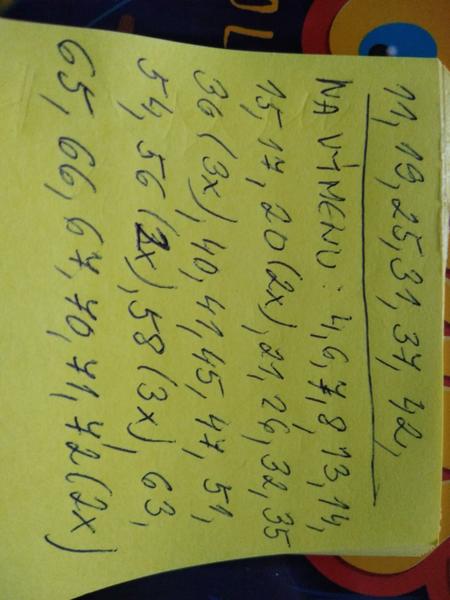 11, 19, 25, 31, 37, 42,
NA VÝMENU: 4, 6, 7, 8, 13, 14,
15, 17, 20(2x), 21, 26, 32, 35
36(3x), 40, 41, 45, 47, 51,
54, 56(2x), 58(3x), 63,
65, 66, 67, 70, 71, 72(2x)